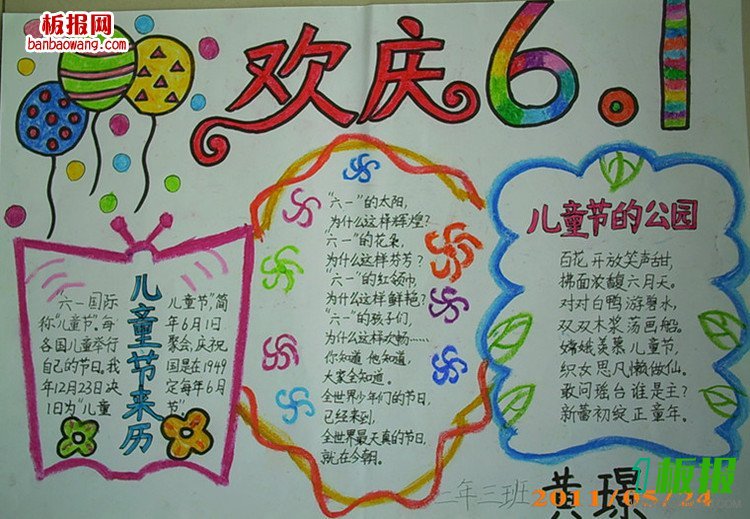 板报网
banbaowang.com
欢庆6.1
儿童节来历
"六一国际
称"儿童节",每
各国儿童举行
自己的节日。我
年12月23日决
1日为"儿童
儿童节"简
年6月1日
聚会,庆祝
国是在1949
定每年6月
节"
"六一"的太阳,
为什么这样辉煌?
"六一"的花朵,
为什么这样芬芳?
"六一"的红领巾
为什么这样鲜艳?
"六一"的孩子们,
为什么这样欢畅……
你知道 他知道,
大家全知道。
全世界少年们的节日,
已经来到,
全世界最天真的节日,
就在今朝。
儿童节的公园
百花开放笑声甜,
拂面浓馥六月天。
对对白鸭游碧水,
双双木桨荡画船。
嫦娥羡慕儿童节,
织女思凡懒做仙。
敢问瑶台谁是主?
新蕾初绽正童年。
一年三班
黄璟
2011/05/24
板报